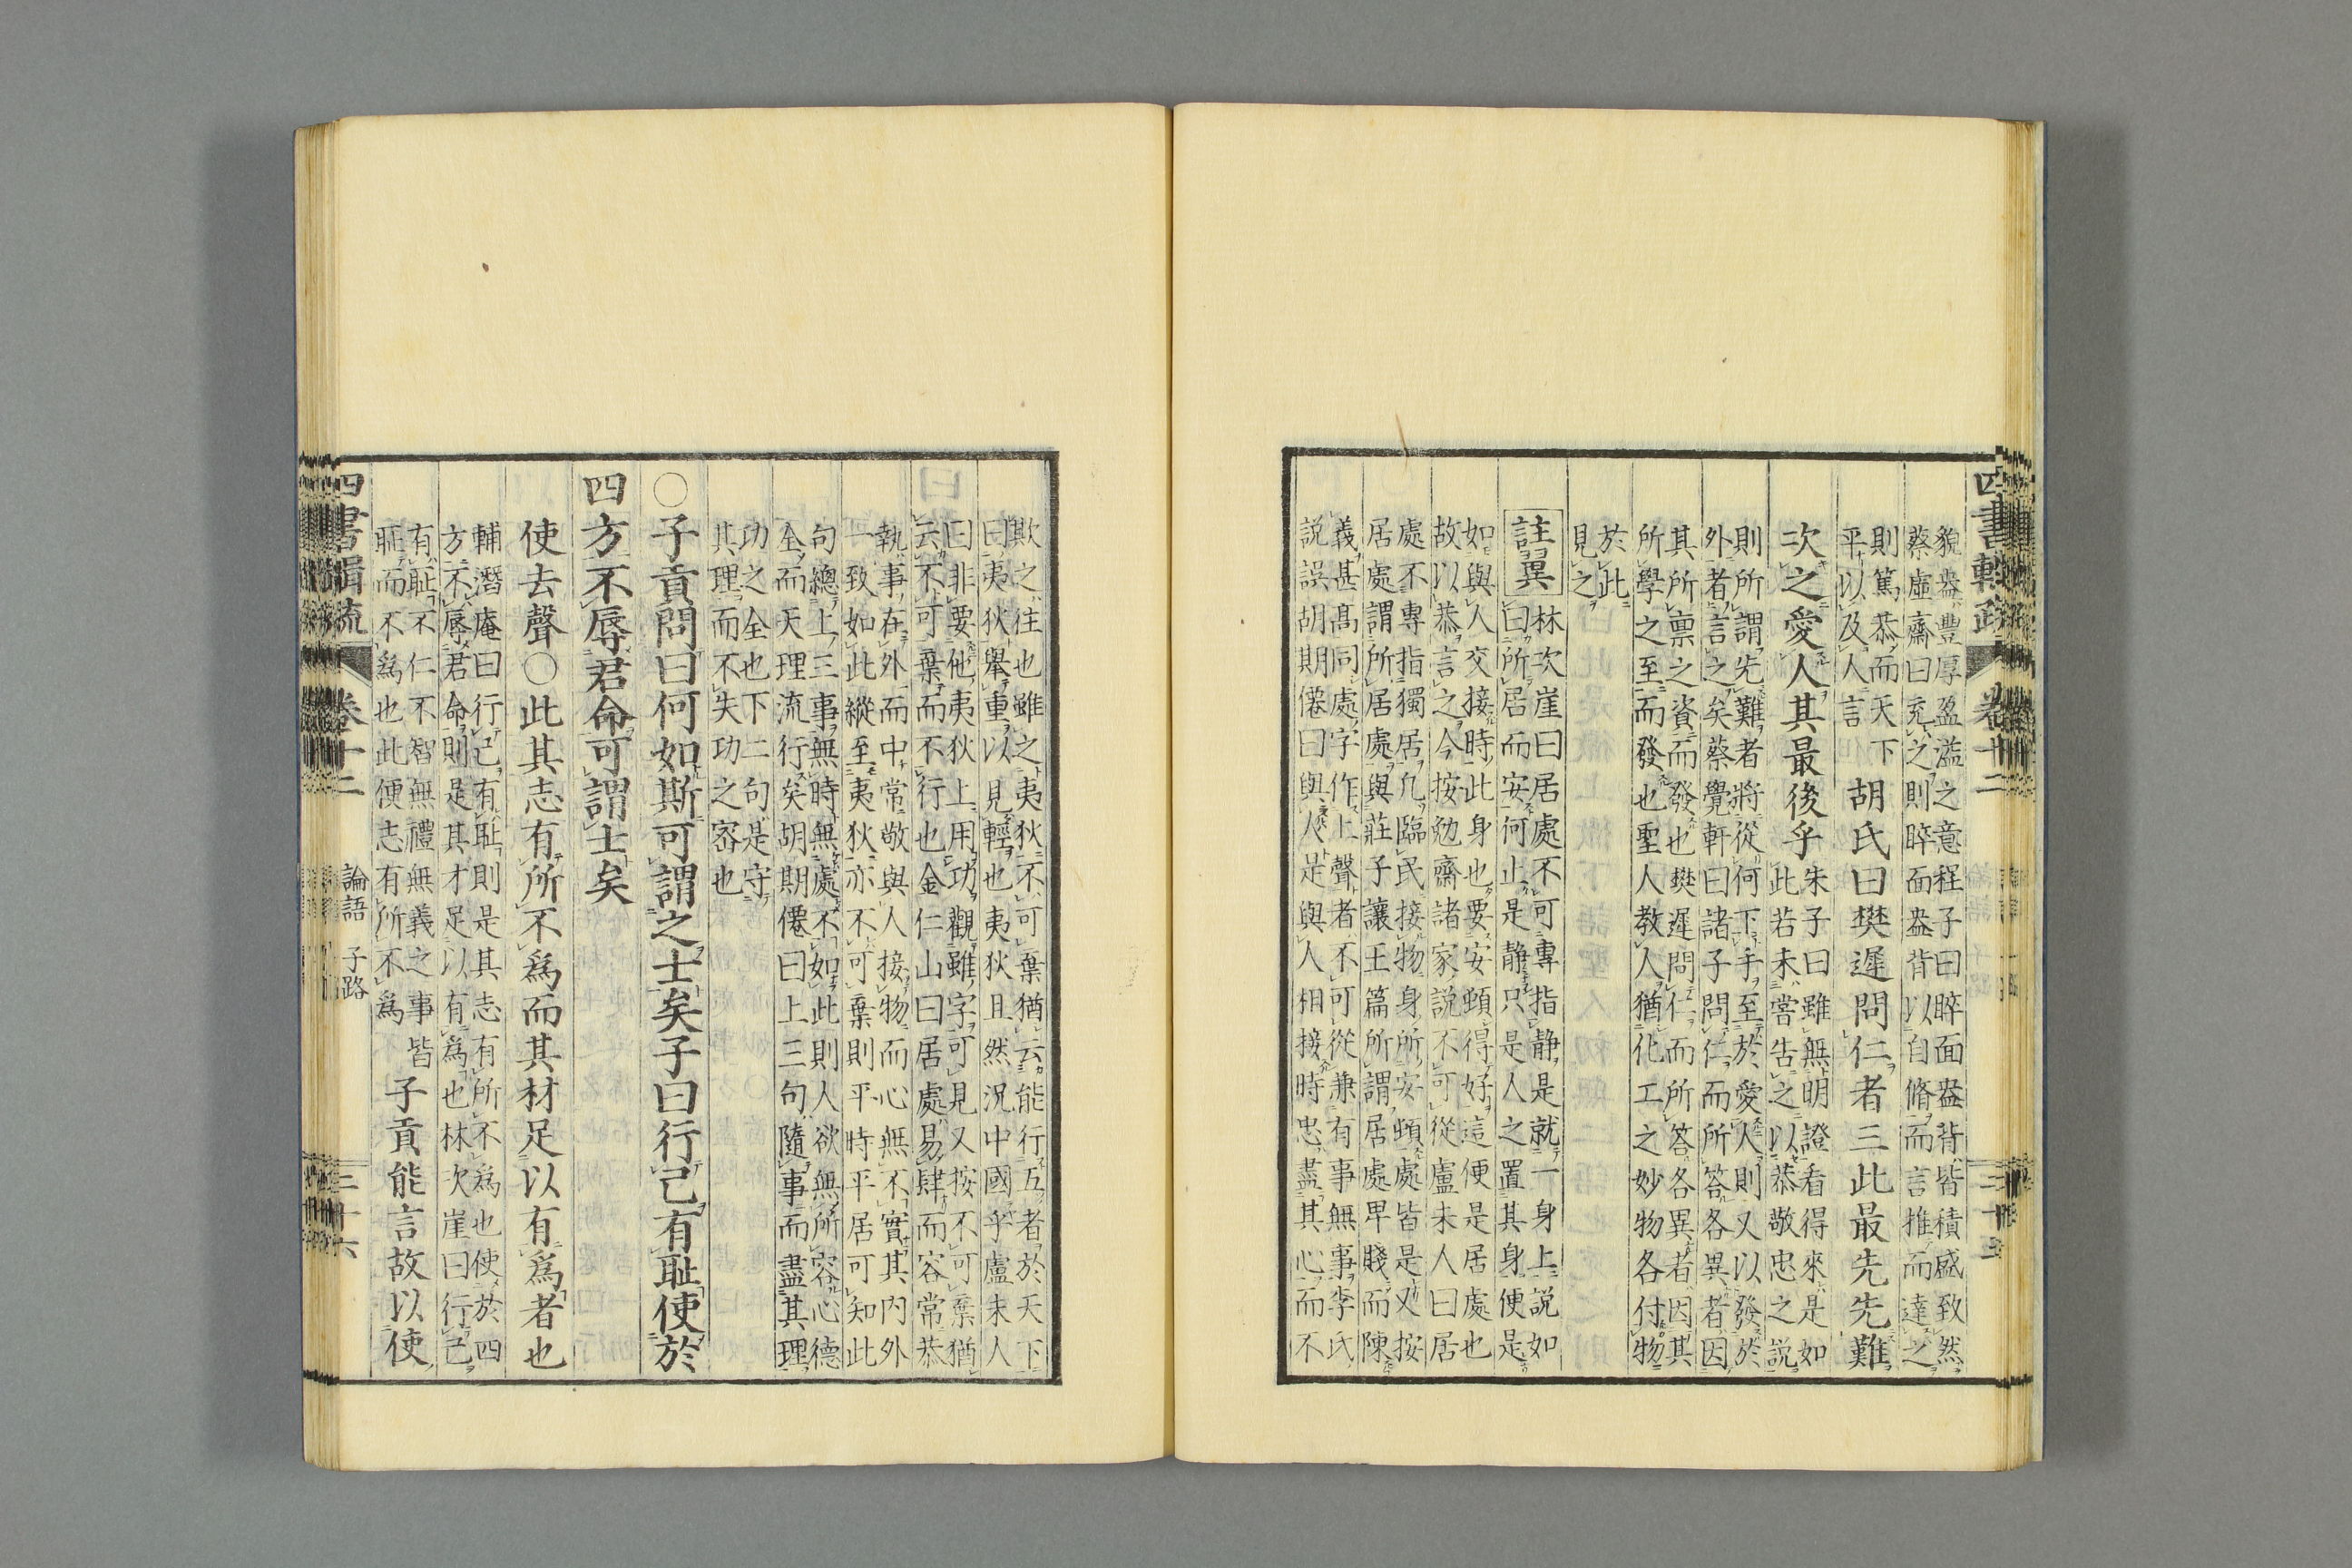 貌盎豐厚盈溢之意程子曰睟面盎背皆積盛致然
蔡虛齋曰充之則睟面盎背以自脩而言推而達之
則篤恭而天下
平以及人言
胡氏曰樊遲問仁者三此最先先難
次之愛人其最後乎
朱子曰雖無明證看得來是如
此若未嘗告之以恭敬忠之說
則所謂先難者將從何下手至於愛人則又以發於
外者言之矣蔡覺軒曰諸子問仁而所答各異者因
其所禀之資而發也樊遲問仁而所答各異者因其
所學之至而發也聖人教人猶化工之妙物各付物
於此
見之
註翼
林次崖曰居處不可專指静是就一身上說如
曰所居而安何止是静只是人之置其身便是
如與人交接時此身也要安頓得好這便是居處也
故以恭言之今按勉齋諸家說不可從盧未人曰居
處不專指獨居凡臨民接物身所安頓處皆是又按
居處謂所居處與莊子讓王篇所謂居處卑賤而陳
義甚高同處字作上聲者不可從兼有事無事李氏
說誤胡期僊曰與人是與人相接時忠盡其心而不
欺之往也雖之夷狄不可棄猶云能行五者於天下
曰夷狄舉重以見輕也夷狄且然況中國乎盧未人
曰非要他夷狄上用功觀雖字可見又按不可棄猶
云不可棄而不行也金仁山曰居處易肆而容常恭
執事在外而中常敬與人接物而心無不實其內外
一致如此縱至夷狄亦不可棄則平時平居可知此
句總上三事無時無處不如此則人欲無所容心德
全而天理流行矣胡期僊曰上三句隨事而盡其理
功之全也下二句是守
其理而不失功之密也
○子貢問曰何如斯可謂之士矣子曰行己有耻使於
四方不辱君命可謂士矣
使去聲○此其志有所不爲而其材足以有爲者也
輔潛庵曰行己有耻則是其志有所不爲也使於四
方不辱君命則是其才足以有爲也林次崖曰行己
有耻不仁不智無禮無義之事皆
耻而不爲也此便志有所不爲
子貢能言故以使
四書輯疏
卷十二
論語 子路
三十六